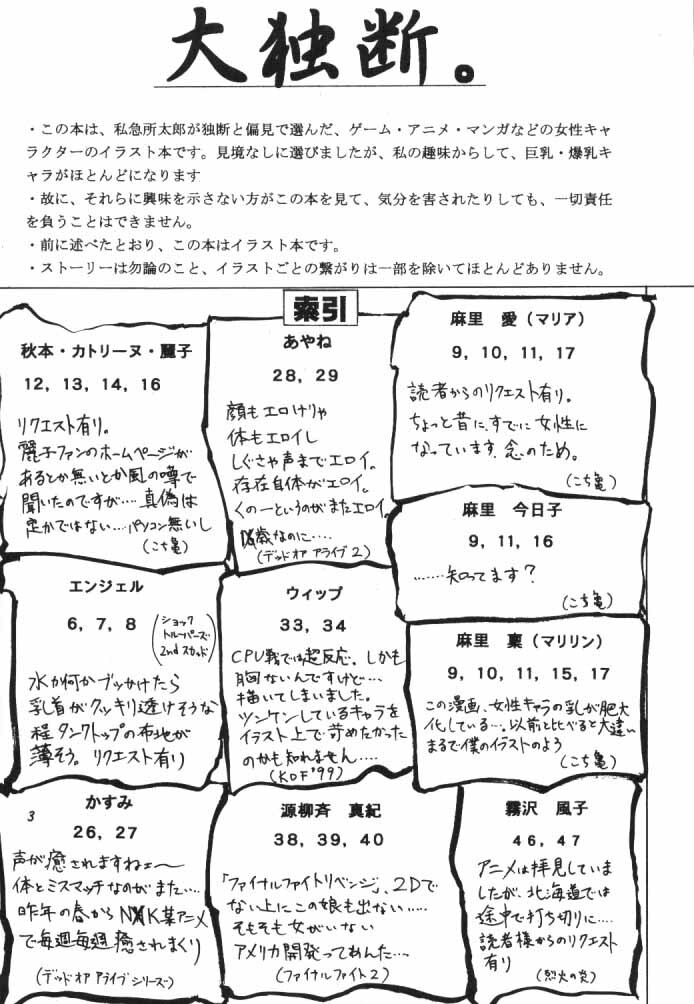 大独断。
・この本は、私急所太郎が独断と偏見で選んだ、ゲーム・アニメ・マンガなどの女性キャ
ラクターのイラスト本です。見境なしに選びましたが、私の趣味からして、巨乳・爆乳キ
ャラがほとんどになります
・故に、それらに興味を示さない方がこの本を見て、気分を害されたりしても、一切責任
を負うことはできません。
・前に述べたとおり、この本はイラスト本です。
・ストーリーは勿論のこと、イラストごとの繋がりは一部を除いてほとんどありません。
索引
秋本・カトリーヌ・麗子
12, 13, 14, 16
リクエスト有り。
麗子ファンのホームページが
あるとか無いとか風の噂で
聞いたのですが…. 真偽は
定かではない….パソコン無いし
(こち亀)
あやね
28, 29
顔もエロけりゃ
体もエロイし
しぐさや声までエロイ。
存在自体がエロイ。
くの一というのがまたエロイ。
歳なのに….
(デッド オア アライブ2)
麻里 愛(マリア)
9, 10, 11, 17
読者からのリクエスト有り。
ちょっと昔に、すでに女性に
なっています、念のため。
(こち亀)
麻里 今日子
9, 11, 16
……知ってます?
(こち亀)
エンジェル
6, 7, 8
(ショック
トルーパーズ
2nd スカッド)
水か何かブッかけたら
乳首がクッキリ透けそうな
程タンクトップの布地が
薄そう。リクエスト有り
ウィップ
33, 34
CPU戦では超反応、しかも
胸ないんですけど…
描いてしまいました。
ツンケンしているキャラを
イラスト上で苛めたかった
のかも知れません….
(KOF'99)
麻里 稟(マリリン)
9, 10, 11, 15, 17
この漫画、女性キャラの乳が肥大
化している…。以前と比べると大違い
まるで僕のイラストのよう
(こち亀)
かすみ
3
26, 27
声が癒されますねェ〜
体とミスマッチなのがまた….
昨年の春からNHK某アニメ
で毎週毎週癒されまくり
(デッド オア アライブ シリーズ)
源柳斉 真紀
38, 39, 40
「ファイナルファイトリベンジ」、2Dで
ない上にこの娘も出ない……
そもそも女がいない
アメリカ開発ってあんた….
(ファイナルファイト2)
霧沢 風子
46, 47
アニメは拝見していま
したが、北海道では
途中で打ち切りに….
読者様からのリクエスト
有り
(烈火の炎)